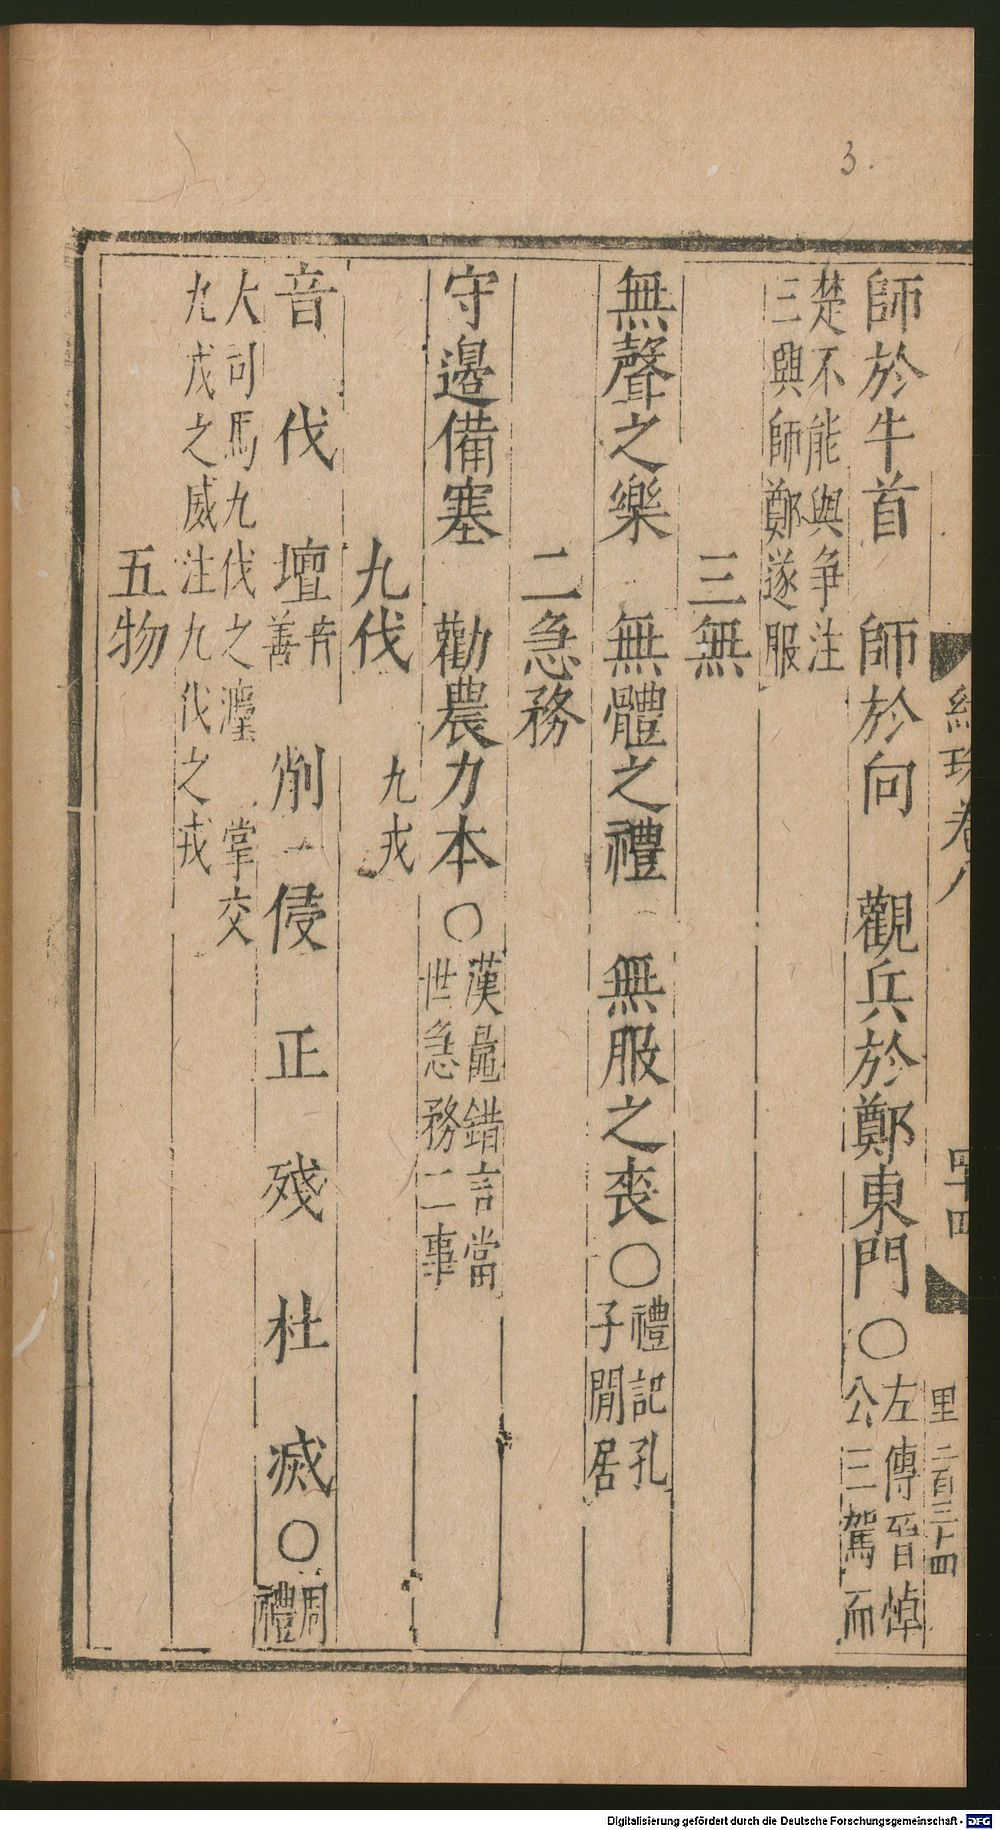 卷八
四
里 二百三十四
師於牛首 師於向 觀兵於鄭東門○左傳晉悼公三駕而
楚不能與争注三與師鄭遂服
三無
無聲之樂 無體之禮 無服之喪○禮記孔子閒居
二急務
守邊備塞 勸農力本○漢鼂錯言當世急務二事
九伐 九戎
音 伐 壇音善 削 侵 正 殘 杜 滅○周禮
大司馬九伐之灋 掌交九戎之威注九伐之戎
五物
3.
Digitalisierung gefördert durch die Deutsche Forschungsgemeinschaft - DFG